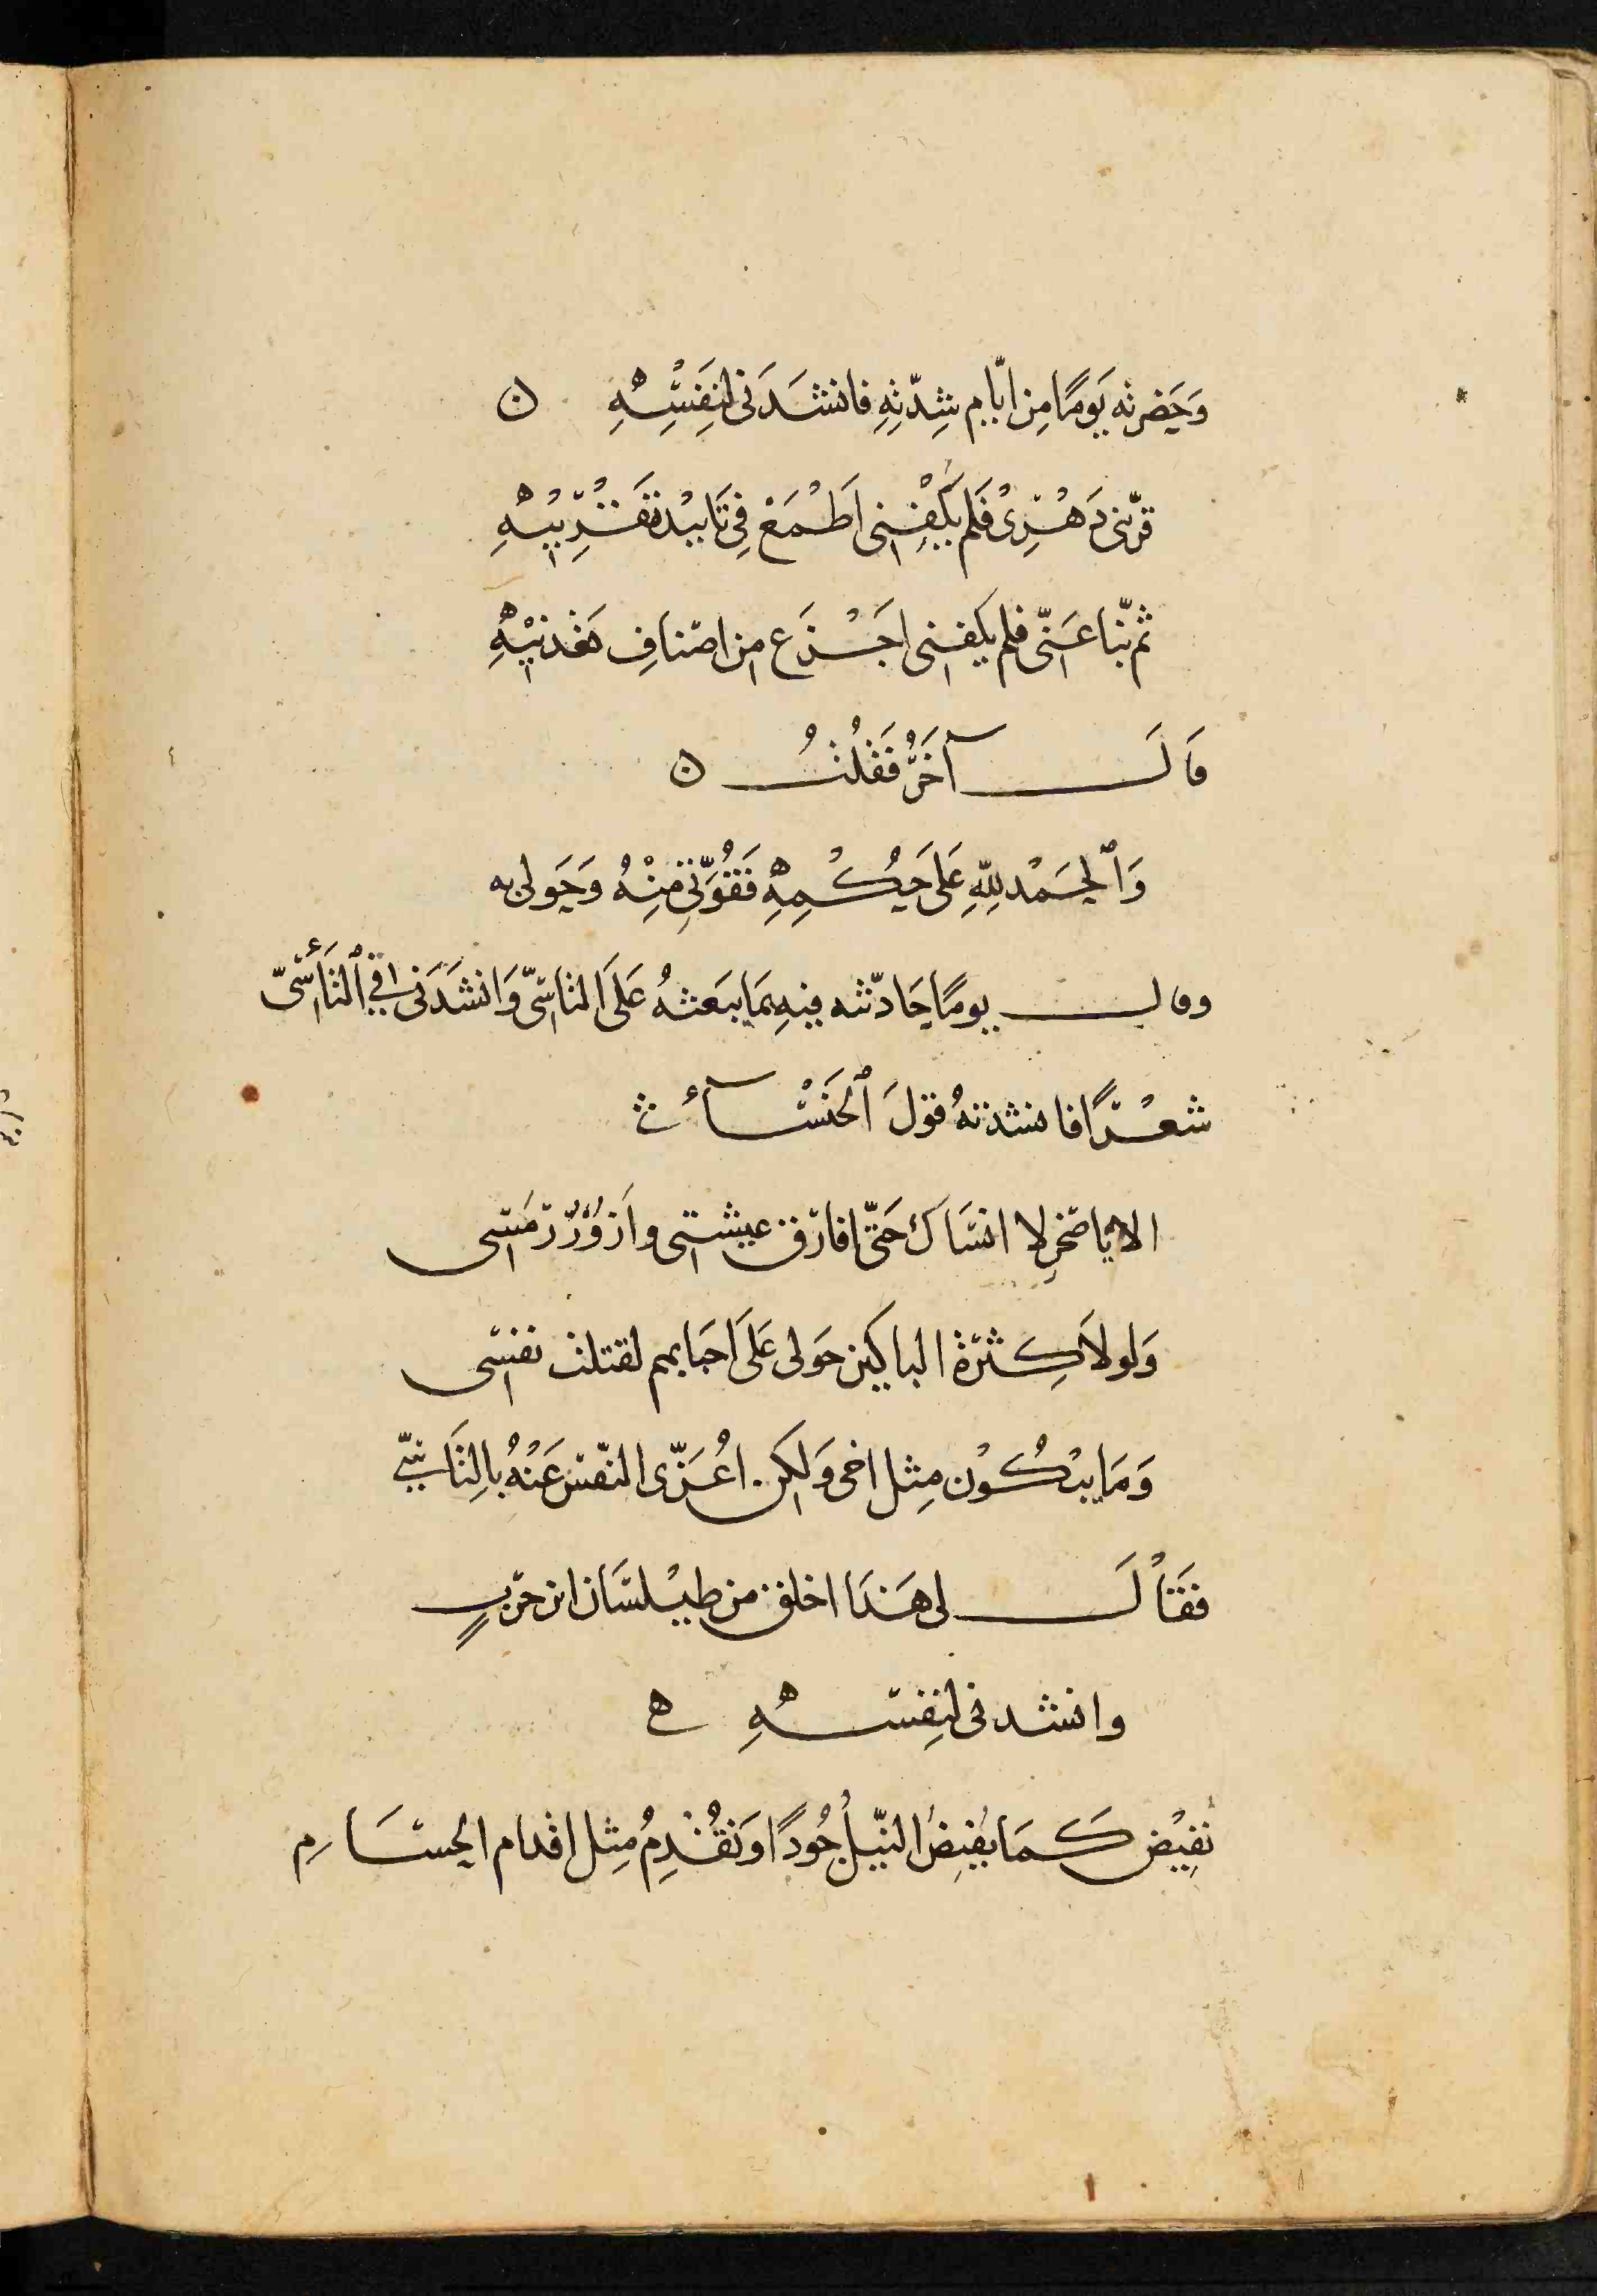 وَحَضرته يَومًا مِن ايّام شِدّتِهِ فانشدَنى لنَفِسْهِ
قرّبنى دَهْرِىْ فَلم يَكْفِنى اَطْمَعَ فى تَابيْد تقَرِيْبِهِ
ثم نّبا عَنّى فلم يكفنى اجْزع من اصناف تعذيْبِهِ
قَالَ آخَرُ فَقُلْتُ
وَٱلحَمْد لِلّهِ عَلَى حُكْمِهِ فَقُوّتى مِنْهُ وَحَولى به
وقال يومًا حَادثته فيهِ بمَا يبَعثهُ عَلَى التاسّى وَانشَدَنى فى ٱلتَأسّىّ
شعْرًا فانشدتهُ قولَ ٱلخَنْسآء
الا يَا صَخرِ لا انسَاكَ حَتّى افارق عيشتى وازُوْرُ رَمسى
وَلولاَ كِثرة الباكين حَولى عَلَى احبابهم لقتلت نفسى
وَمَا يبْكُوْن مِثل اخى وَلكن اُعَزّى النفسَ عَنْهُ بالِتَاسّىّ
فقَالَ لى هَذا اخلق من طيْلسَان ابن حربٍ
وانشدنى لنفِسهِ
نفِيْض كَمَا يفيض النّيلُ جُودًا وَنقُدِمُ مِثل اقدام الحسَامِ